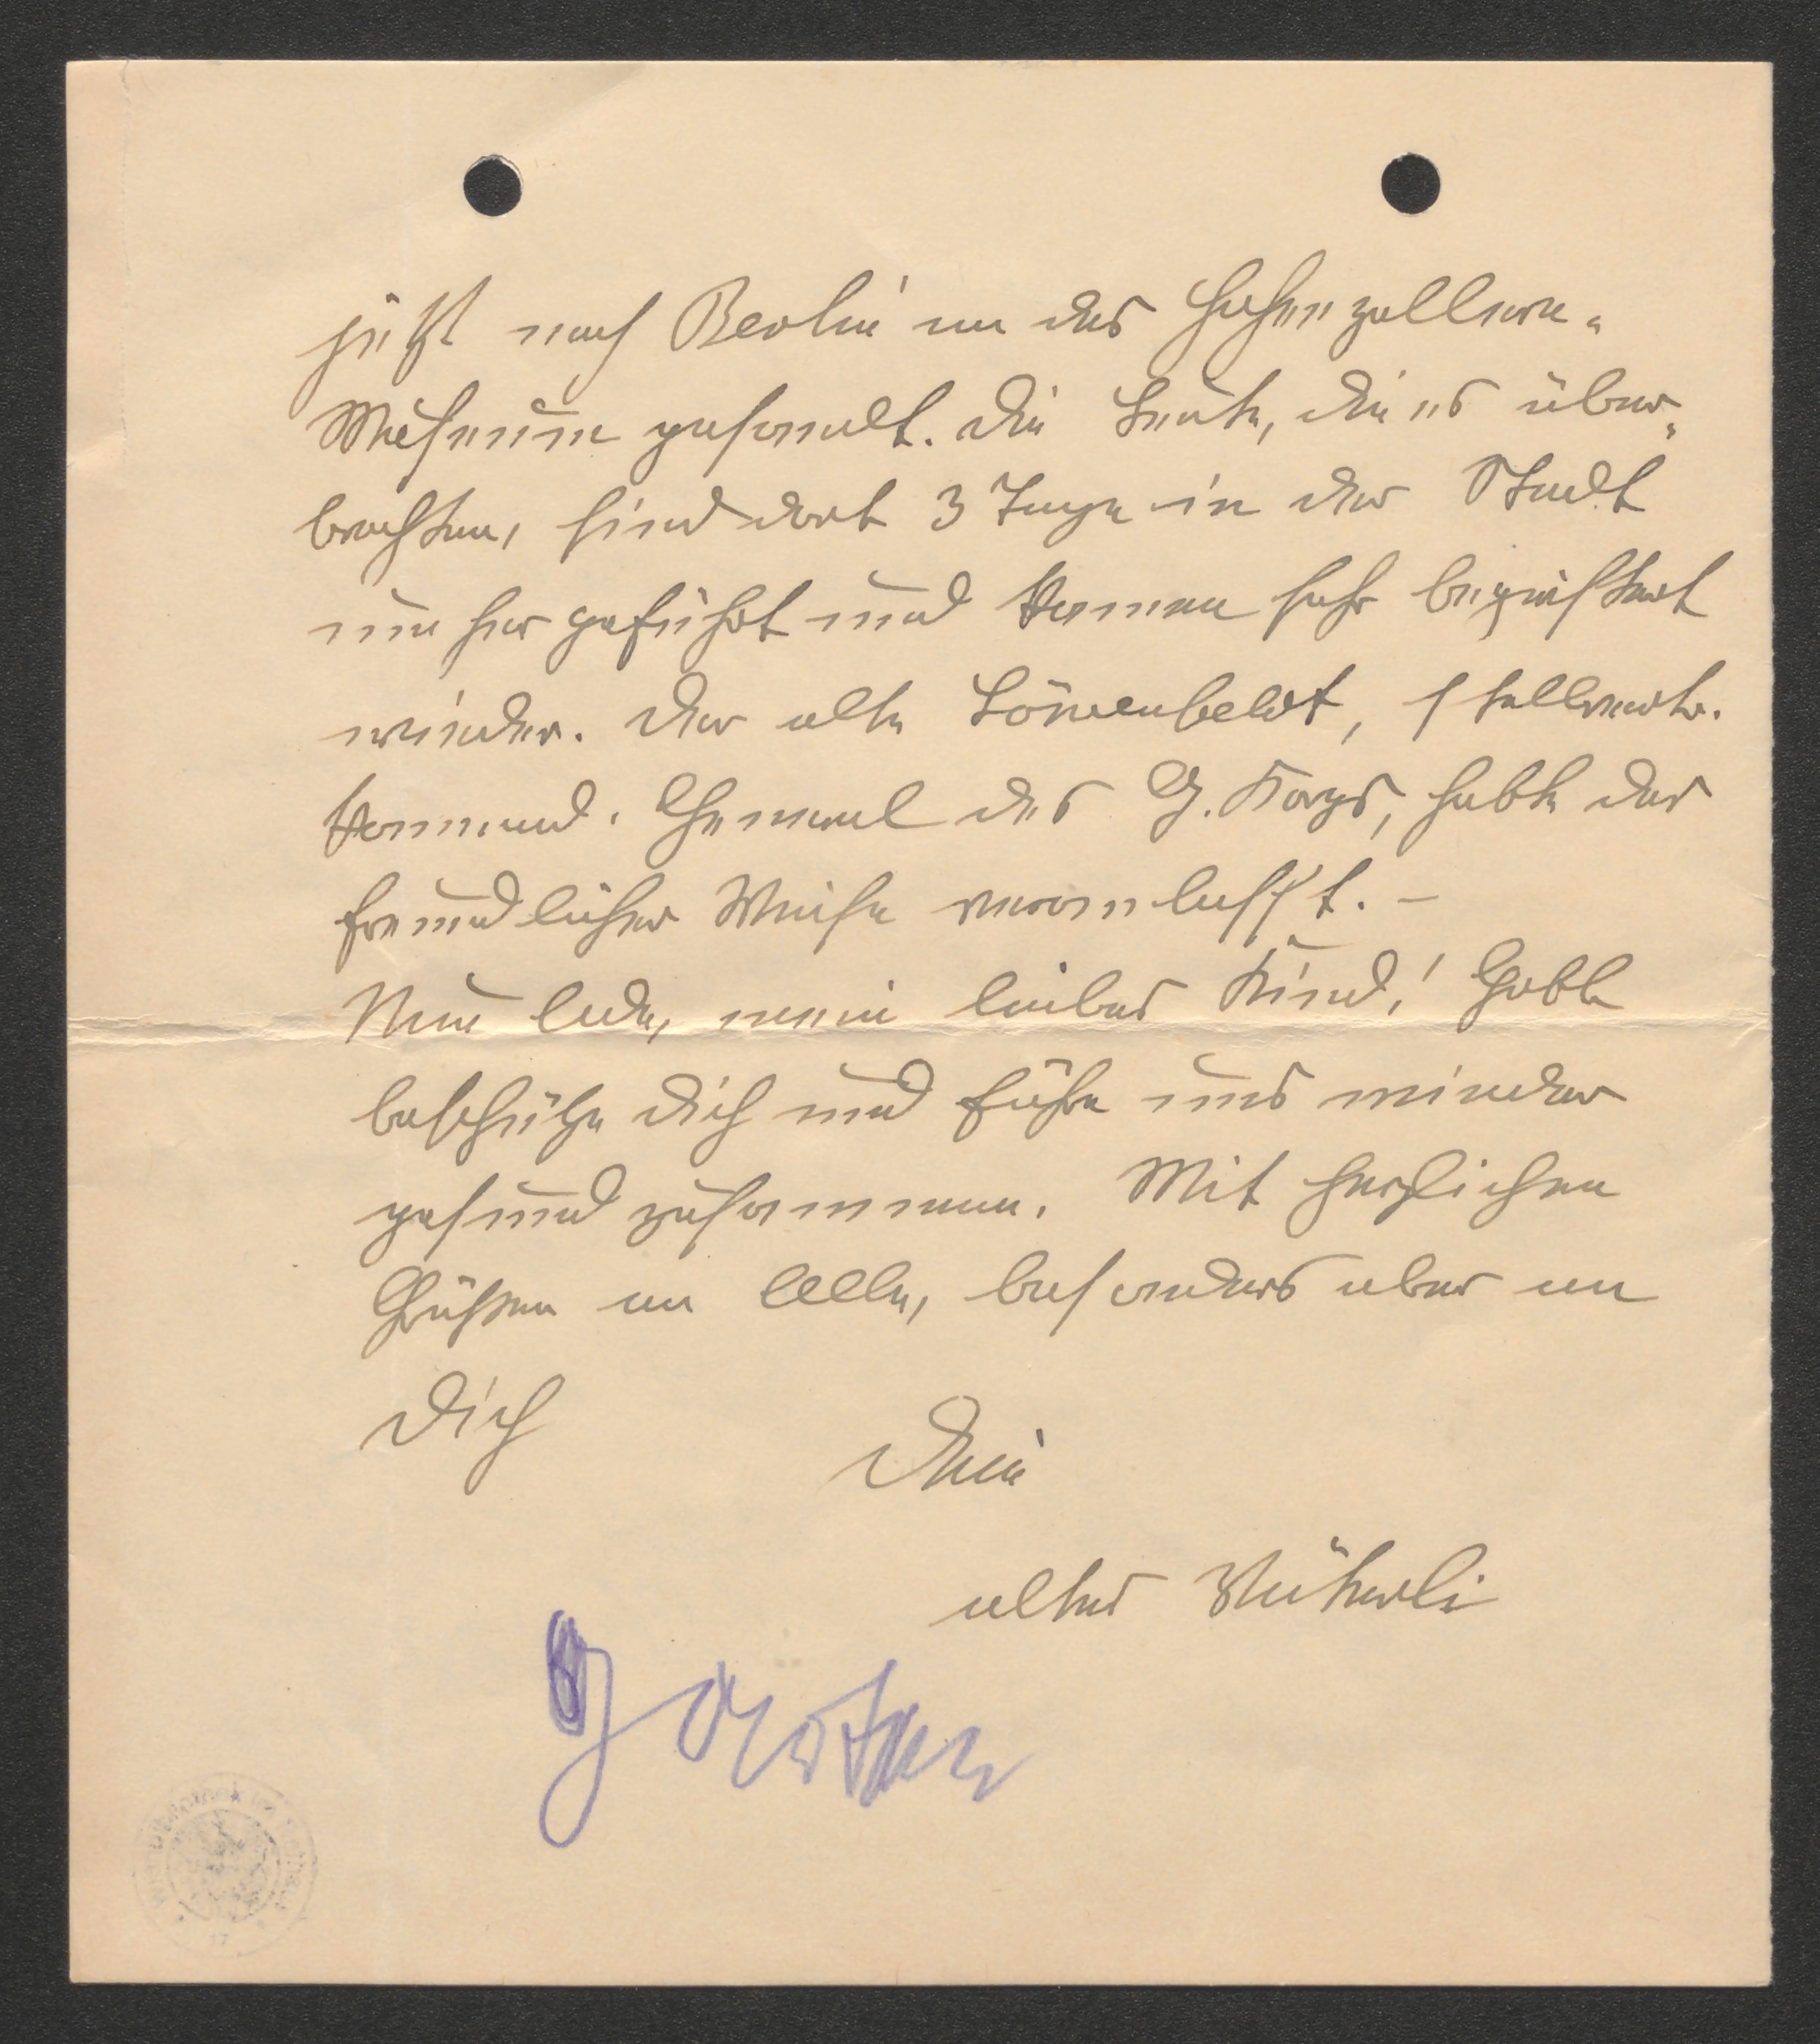 jetzt nach Berlin an das Hohenzollern-
Museum gesandt. Die Leute, die es über-
brachten, sind dort 3 Tage in der Stadt
umher geführt und kamen sehr begeistert
wieder. Der alte Löwenfeldt, stellvertr.
kommand. General des G. Korps, hatte das
freundlicher Weise veranlasst. –
Nun lebe, mein liebes Kind! Gott
beschütze Dich und führe uns wieder
gesund zusammen. Mit herzlichen
Grüßen an Alle, besonders aber an
Dich
Dein
altes